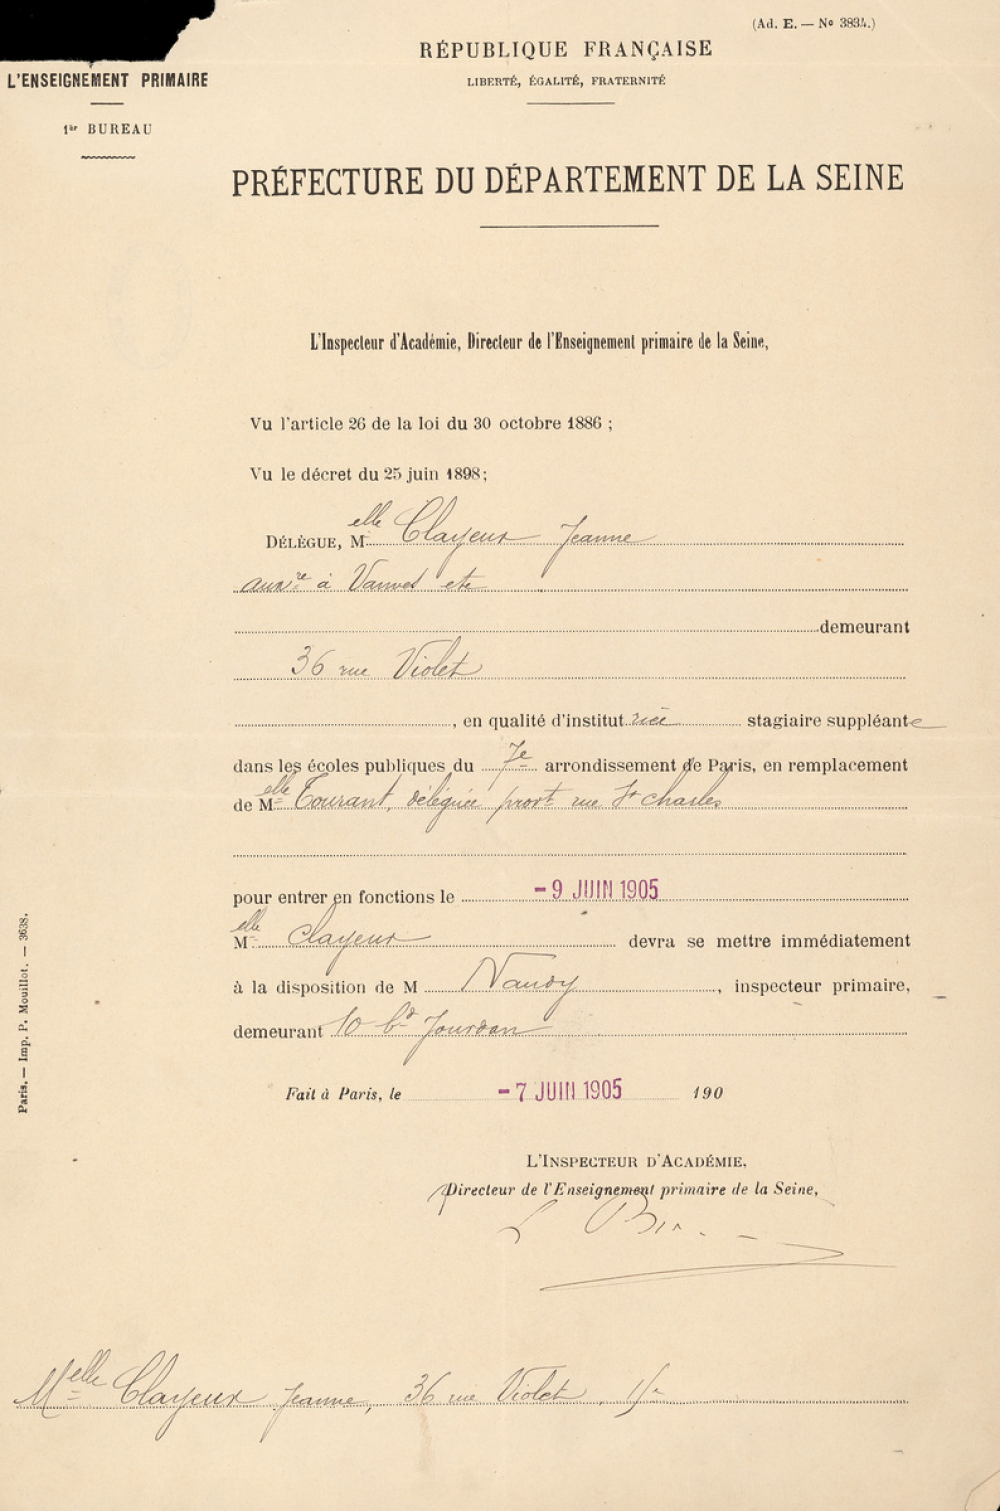 (Ad. E. — No 3834.)
RÉPUBLIQUE FRANÇAISE
LIBERTÉ, ÉGALITÉ, FRATERNITÉ
L'ENSEIGNEMENT PRIMAIRE
1er BUREAU
PRÉFECTURE DU DÉPARTEMENT DE LA SEINE
L'Inspecteur d'Académie, Directeur de l'Enseignement primaire de la Seine,
Vu l'article 26 de la loi du 30 octobre 1886 ;
Vu le décret du 25 juin 1898;
DÉLÈGUE, Melle Clayeux Jeanne
auxre à Vanves etc
demeurant
36 rue Violet
, en qualité d'institutrice stagiaire suppléante
dans les écoles publiques du 7e arrondissement de Paris, en remplacement
de Melle Tourant, déléguée provt rue St Charles
pour entrer en fonctions le - 9 JUIN 1905
Melle Clayeux devra se mettre immédiatement
à la disposition de M Naudy, inspecteur primaire,
demeurant 10 bd Jourdan
Fait à Paris, le - 7 JUIN 1905 190
L'INSPECTEUR D'ACADÉMIE,
Directeur de l'Enseignement primaire de la Seine,
Melle Clayeux Jeanne, 36 rue Violet, 15e
Paris. — Imp. P. Mouillot. — 3638.